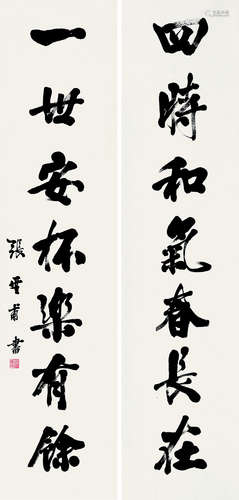 四時和氣春長在
一世安杯樂有餘
張雲甫書